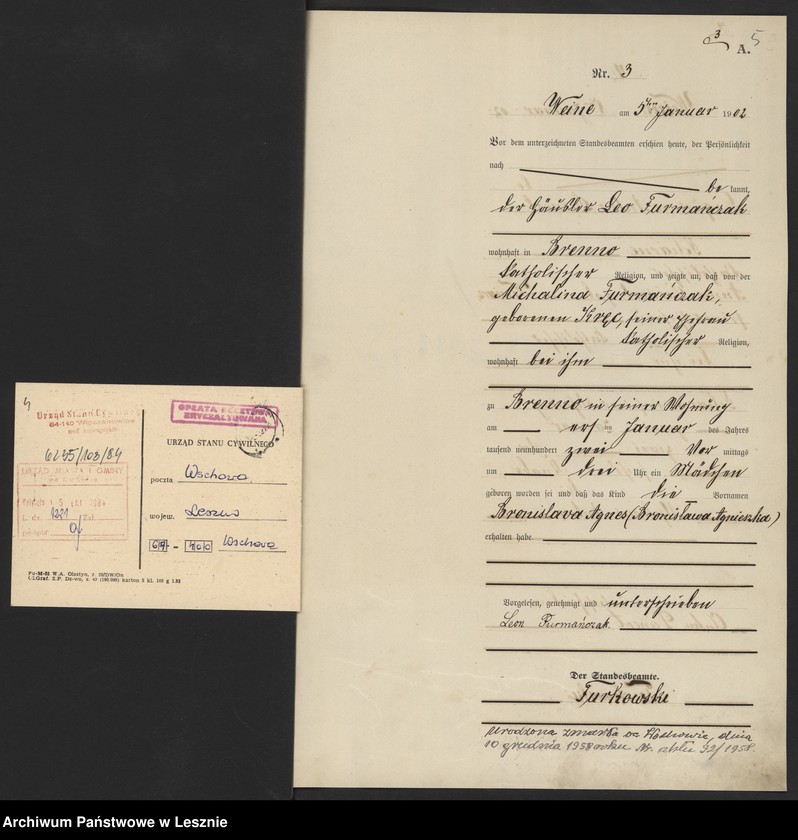 Urząd Stanu Cywilnego
6255/103/84
URZĄD MIASTA I GMINY
L. dz. 1221 Zał.
OPŁATA POCZTOWA
ZRYCZAŁTOWANA
URZĄD STANU CYWILNEGO
poczta Wschowa
wojew. Leszno
67-400 Wschowa
Pu-M-81 W.A. Olsztyn, z.
karton 5 kl. 169 g 1.83
3
A. 5
Nr. 3
Weine am 5ten Januar 1902
Vor dem unterzeichneten Standesbeamten erschien heute, der Persönlichkeit
nach
bekannt,
der Häusler Leo Furmańczak
wohnhaft in Brenno
katholischer Religion, und zeigte an, daß von der
Michalina Furmańczak,
geborenen Kręc, seiner Ehefrau
katholischer Religion,
wohnhaft bei ihm
zu Brenno in seiner Wohnung
am ersten Januar des Jahres
tausend neunhundert zwei Vor mittags
um drei Uhr ein Mädchen
geboren worden sei und daß das Kind die Vornamen
Bronislava Agnes (Bronisława Agnieszka)
erhalten habe.
Vorgelesen, genehmigt und unterschrieben
Leon Furmańczak.
Der Standesbeamte.
Furkowski
Urodzona zmarła we Wschowie, dnia
10 grudnia 1958 roku Nr. aktu 92/1958.
Archiwum Państwowe w Lesznie